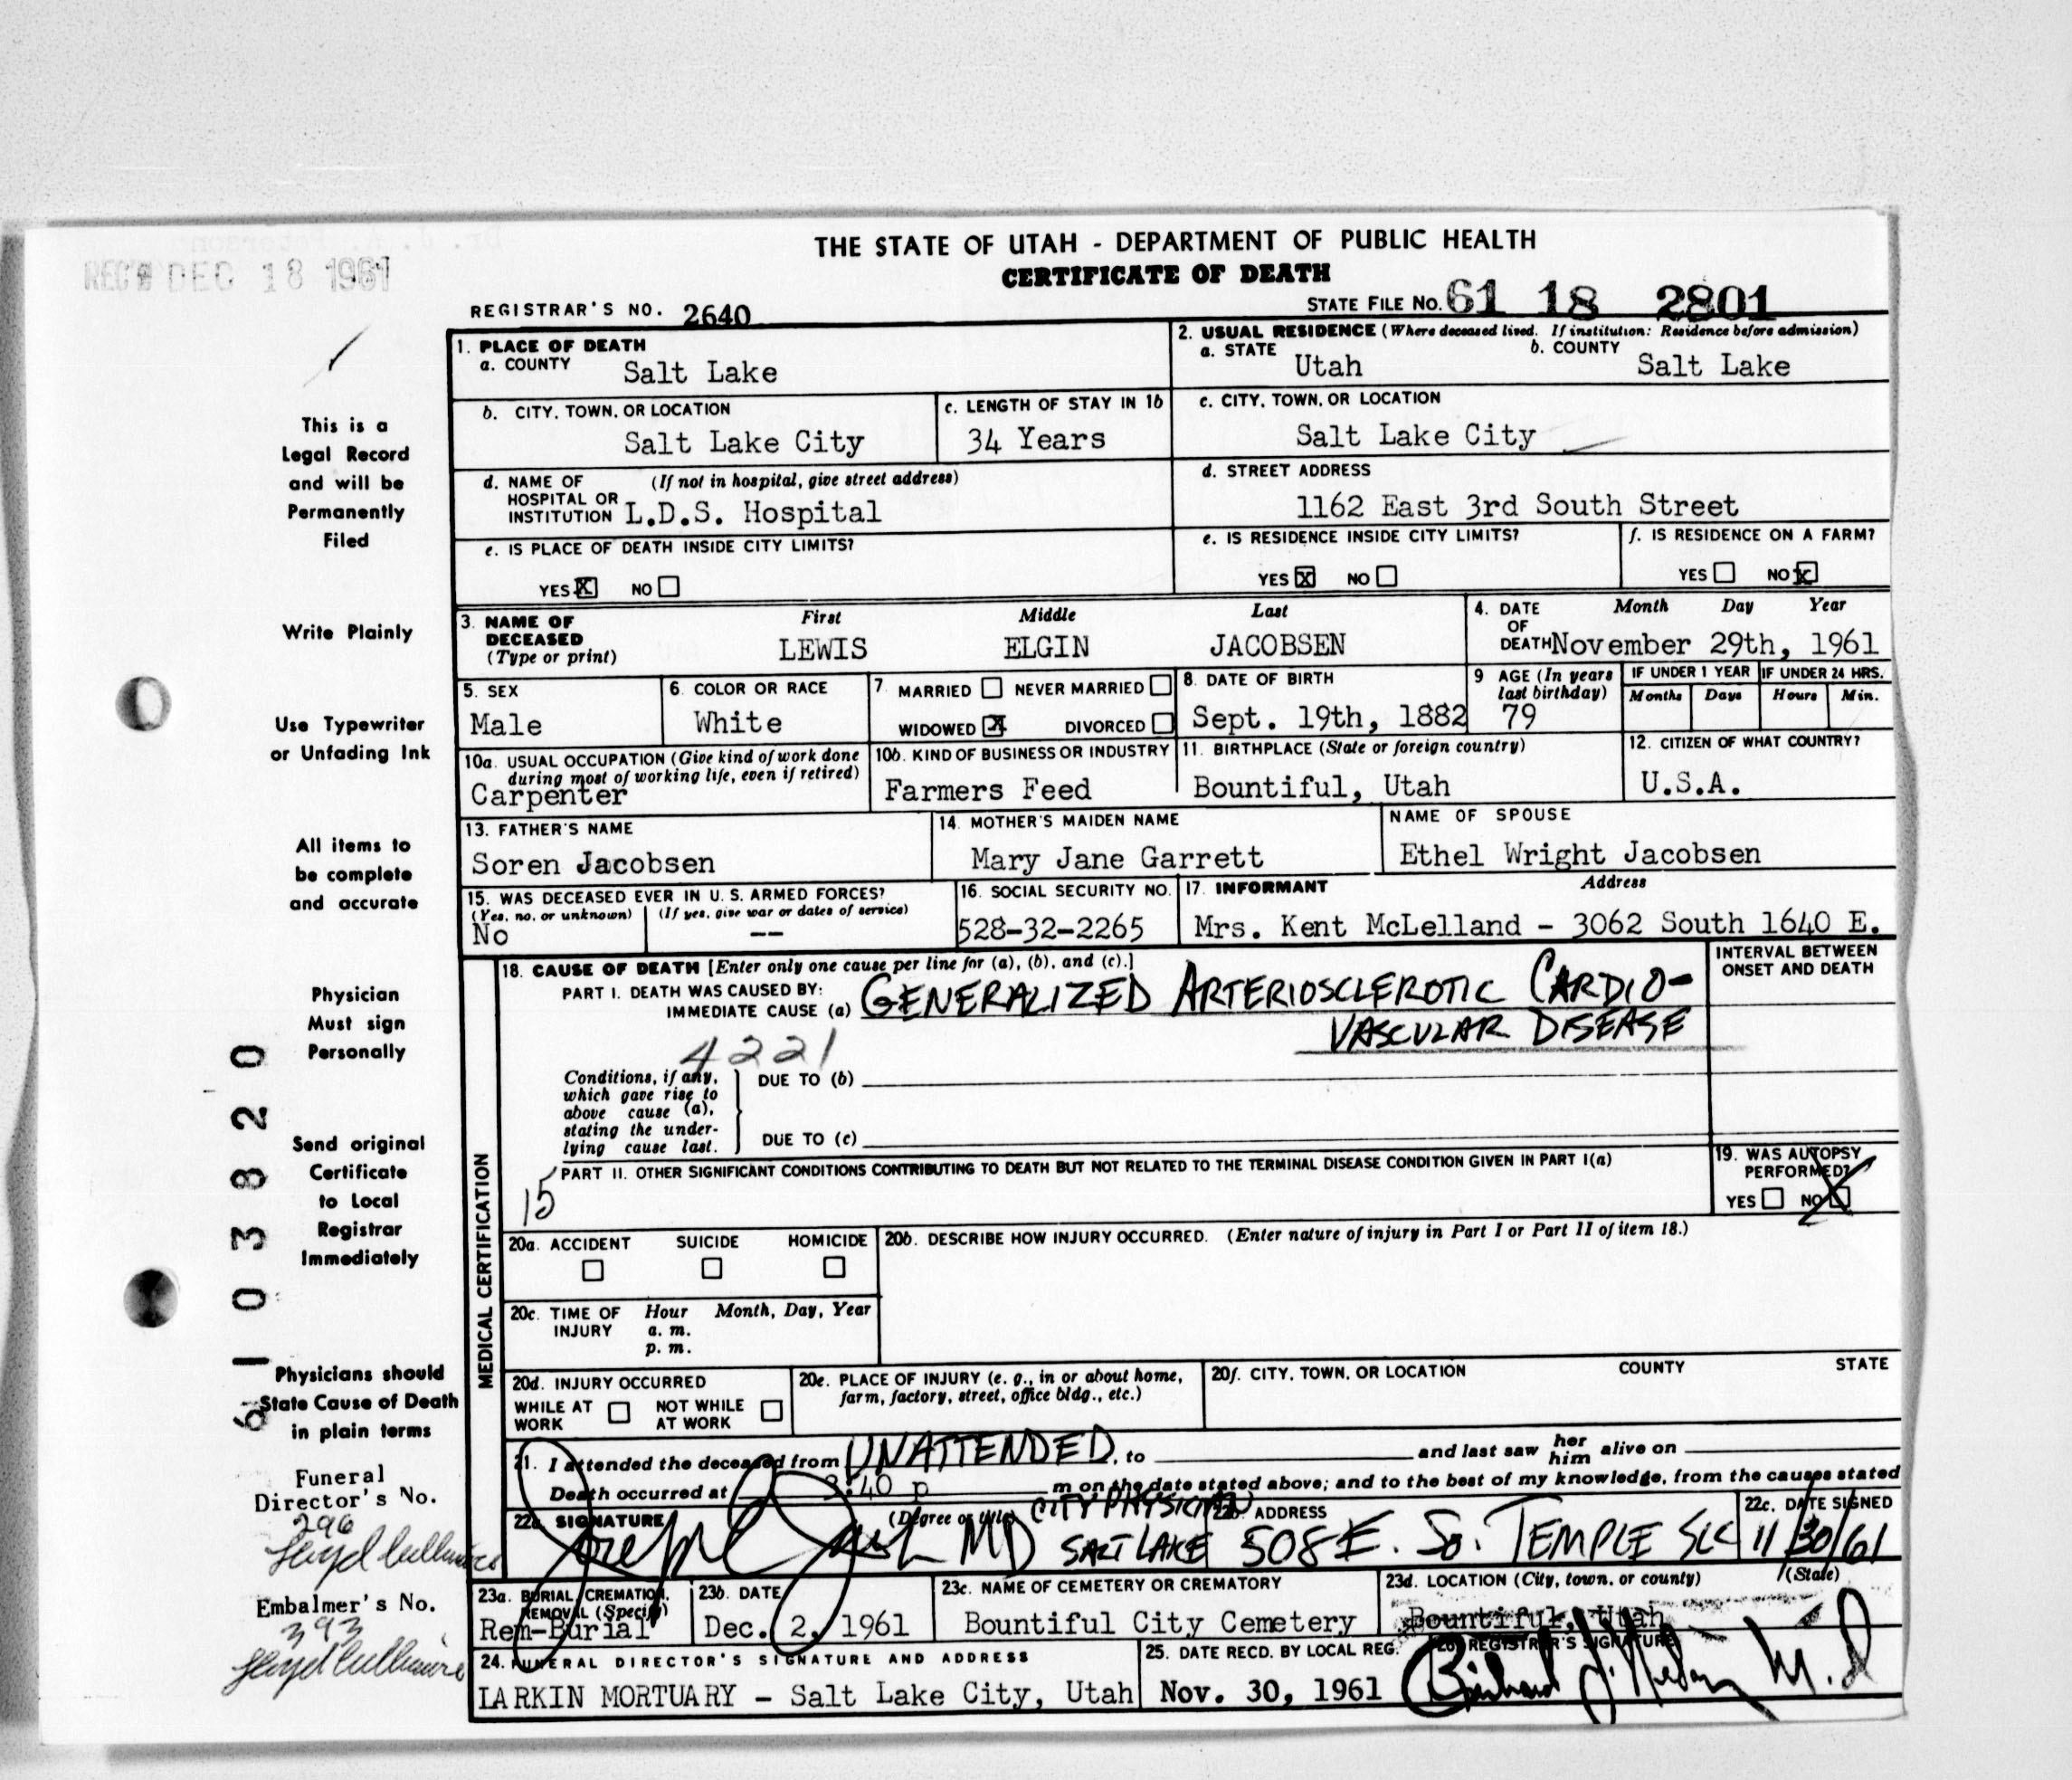 THE STATE OF UTAH - DEPARTMENT OF PUBLIC HEALTH
CERTIFICATE OF DEATH
REC'D DEC 18 1961
REGISTRAR'S NO. 2640
STATE FILE NO. 61 18 2801
1. PLACE OF DEATH
a. COUNTY Salt Lake
2. USUAL RESIDENCE (Where deceased lived. If institution: Residence before admission)
a. STATE Utah b. COUNTY Salt Lake
b. CITY, TOWN, OR LOCATION Salt Lake City
c. LENGTH OF STAY IN 1b 34 Years
c. CITY, TOWN, OR LOCATION Salt Lake City
d. NAME OF HOSPITAL OR INSTITUTION (If not in hospital, give street address) L.D.S. Hospital
d. STREET ADDRESS 1162 East 3rd South Street
e. IS PLACE OF DEATH INSIDE CITY LIMITS?
YES X NO
e. IS RESIDENCE INSIDE CITY LIMITS?
YES X NO
f. IS RESIDENCE ON A FARM?
YES NO X
3. NAME OF DECEASED (Type or print)
First Middle Last
LEWIS ELGIN JACOBSEN
4. DATE OF DEATH Month Day Year
November 29th, 1961
5. SEX Male
6. COLOR OR RACE White
7. MARRIED NEVER MARRIED
WIDOWED X DIVORCED
8. DATE OF BIRTH Sept. 19th, 1882
9 AGE (In years last birthday) 79
IF UNDER 1 YEAR Months Days
IF UNDER 24 HRS. Hours Min.
10a. USUAL OCCUPATION (Give kind of work done during most of working life, even if retired) Carpenter
10b. KIND OF BUSINESS OR INDUSTRY Farmers Feed
11. BIRTHPLACE (State or foreign country) Bountiful, Utah
12. CITIZEN OF WHAT COUNTRY? U.S.A.
13. FATHER'S NAME Soren Jacobsen
14. MOTHER'S MAIDEN NAME Mary Jane Garrett
NAME OF SPOUSE Ethel Wright Jacobsen
15. WAS DECEASED EVER IN U. S. ARMED FORCES?
(Yes, no, or unknown) No
(If yes, give war or dates of service) --
16. SOCIAL SECURITY NO. 528-32-2265
17. INFORMANT Address
Mrs. Kent McLelland - 3062 South 1640 E.
MEDICAL CERTIFICATION
18. CAUSE OF DEATH [Enter only one cause per line for (a), (b), and (c).]
PART I. DEATH WAS CAUSED BY:
IMMEDIATE CAUSE (a) GENERALIZED ARTERIOSCLEROTIC CARDIO-
VASCULAR DISEASE
4221
INTERVAL BETWEEN ONSET AND DEATH
Conditions, if any, which gave rise to above cause (a), stating the underlying cause last.
DUE TO (b)
DUE TO (c)
PART II. OTHER SIGNIFICANT CONDITIONS CONTRIBUTING TO DEATH BUT NOT RELATED TO THE TERMINAL DISEASE CONDITION GIVEN IN PART I(a)
15
19. WAS AUTOPSY PERFORMED?
YES NO X
20a. ACCIDENT SUICIDE HOMICIDE
20b. DESCRIBE HOW INJURY OCCURRED. (Enter nature of injury in Part I or Part II of item 18.)
20c. TIME OF INJURY Hour Month, Day, Year
a. m.
p. m.
20d. INJURY OCCURRED
WHILE AT WORK NOT WHILE AT WORK
20e. PLACE OF INJURY (e. g., in or about home, farm, factory, street, office bldg., etc.)
20f. CITY, TOWN, OR LOCATION COUNTY STATE
21. I attended the deceased from UNATTENDED, to and last saw her him alive on
Death occurred at 3:40 p m on the date stated above; and to the best of my knowledge, from the causes stated
22a. SIGNATURE (Degree or title) MD CITY PHYSICIAN SALT LAKE
22b. ADDRESS 508 E. So. TEMPLE SLC
22c. DATE SIGNED 11/30/61
23a. BURIAL, CREMATION, REMOVAL (Specify) Rem-Burial
23b. DATE Dec. 2, 1961
23c. NAME OF CEMETERY OR CREMATORY Bountiful City Cemetery
23d. LOCATION (City, town, or county) (State) Bountiful, Utah
24. FUNERAL DIRECTOR'S SIGNATURE AND ADDRESS
LARKIN MORTUARY - Salt Lake City, Utah
25. DATE RECD. BY LOCAL REG. Nov. 30, 1961
26. REGISTRAR'S SIGNATURE M.D
This is a
Legal Record
and will be
Permanently
Filed
Write Plainly
Use Typewriter
or Unfading Ink
All items to
be complete
and accurate
Physician
Must sign
Personally
Send original
Certificate
to Local
Registrar
Immediately
Physicians should
State Cause of Death
in plain terms
Funeral
Director's No.
296
Embalmer's No.
393
61 03820